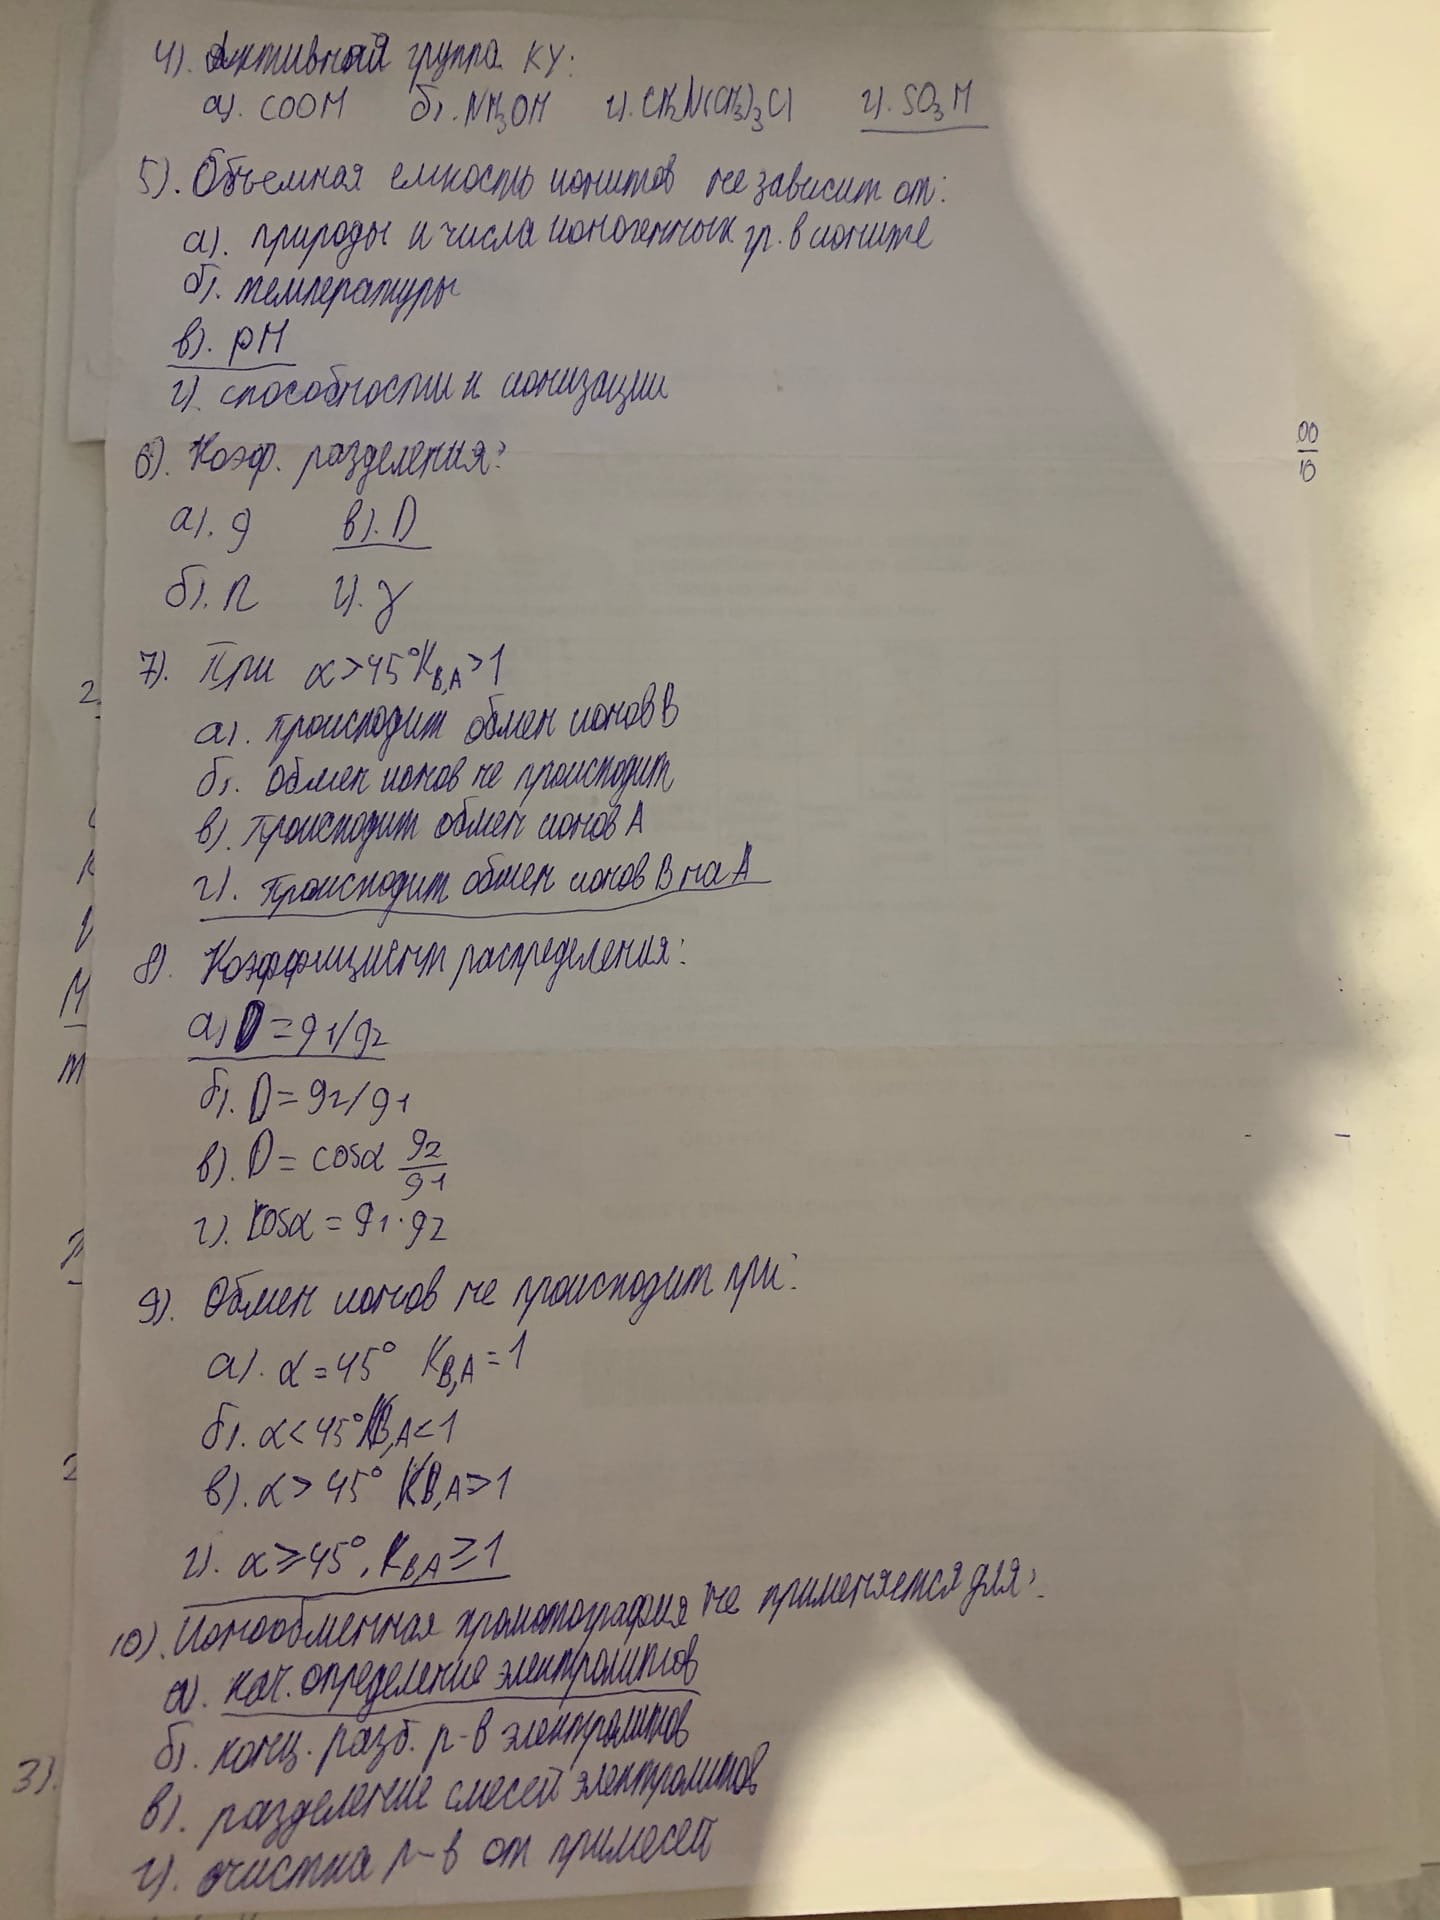 4). Активная группа КУ:
а). COOH б). NH3OH г). CH2N(CH3)3Cl г). SO3H
5). Объемная емкость ионитов не зависит от:
а). природы и числа ионогенных гр. в ионите
б). температуры
в). pH
г). способности к ионизации
6). Коэф. разделения:
а). g в). D
б). n г). γ
7). При α>45° KB,A>1
а). происходит обмен ионов B
б). обмен ионов не происходит
в). происходит обмен ионов A
г). происходит обмен ионов B на A
8). Коэффициент распределения:
а) D = g1/g2
б). D = g2/g1
в). D = cosα g2/g1
г). cosα = g1·g2
9). Обмен ионов не происходит при:
а). α=45° KB,A=1
б). α<45° KB,A<1
в). α>45° KB,A>1
г). α≥45°, KB,A≥1
10). Ионообменная хроматография не применяется для:
а). кач. определение электролитов
б). конц. разб. р-в электролитов
в). разделение смесей электролитов
г). очистка р-в от примесей
3).